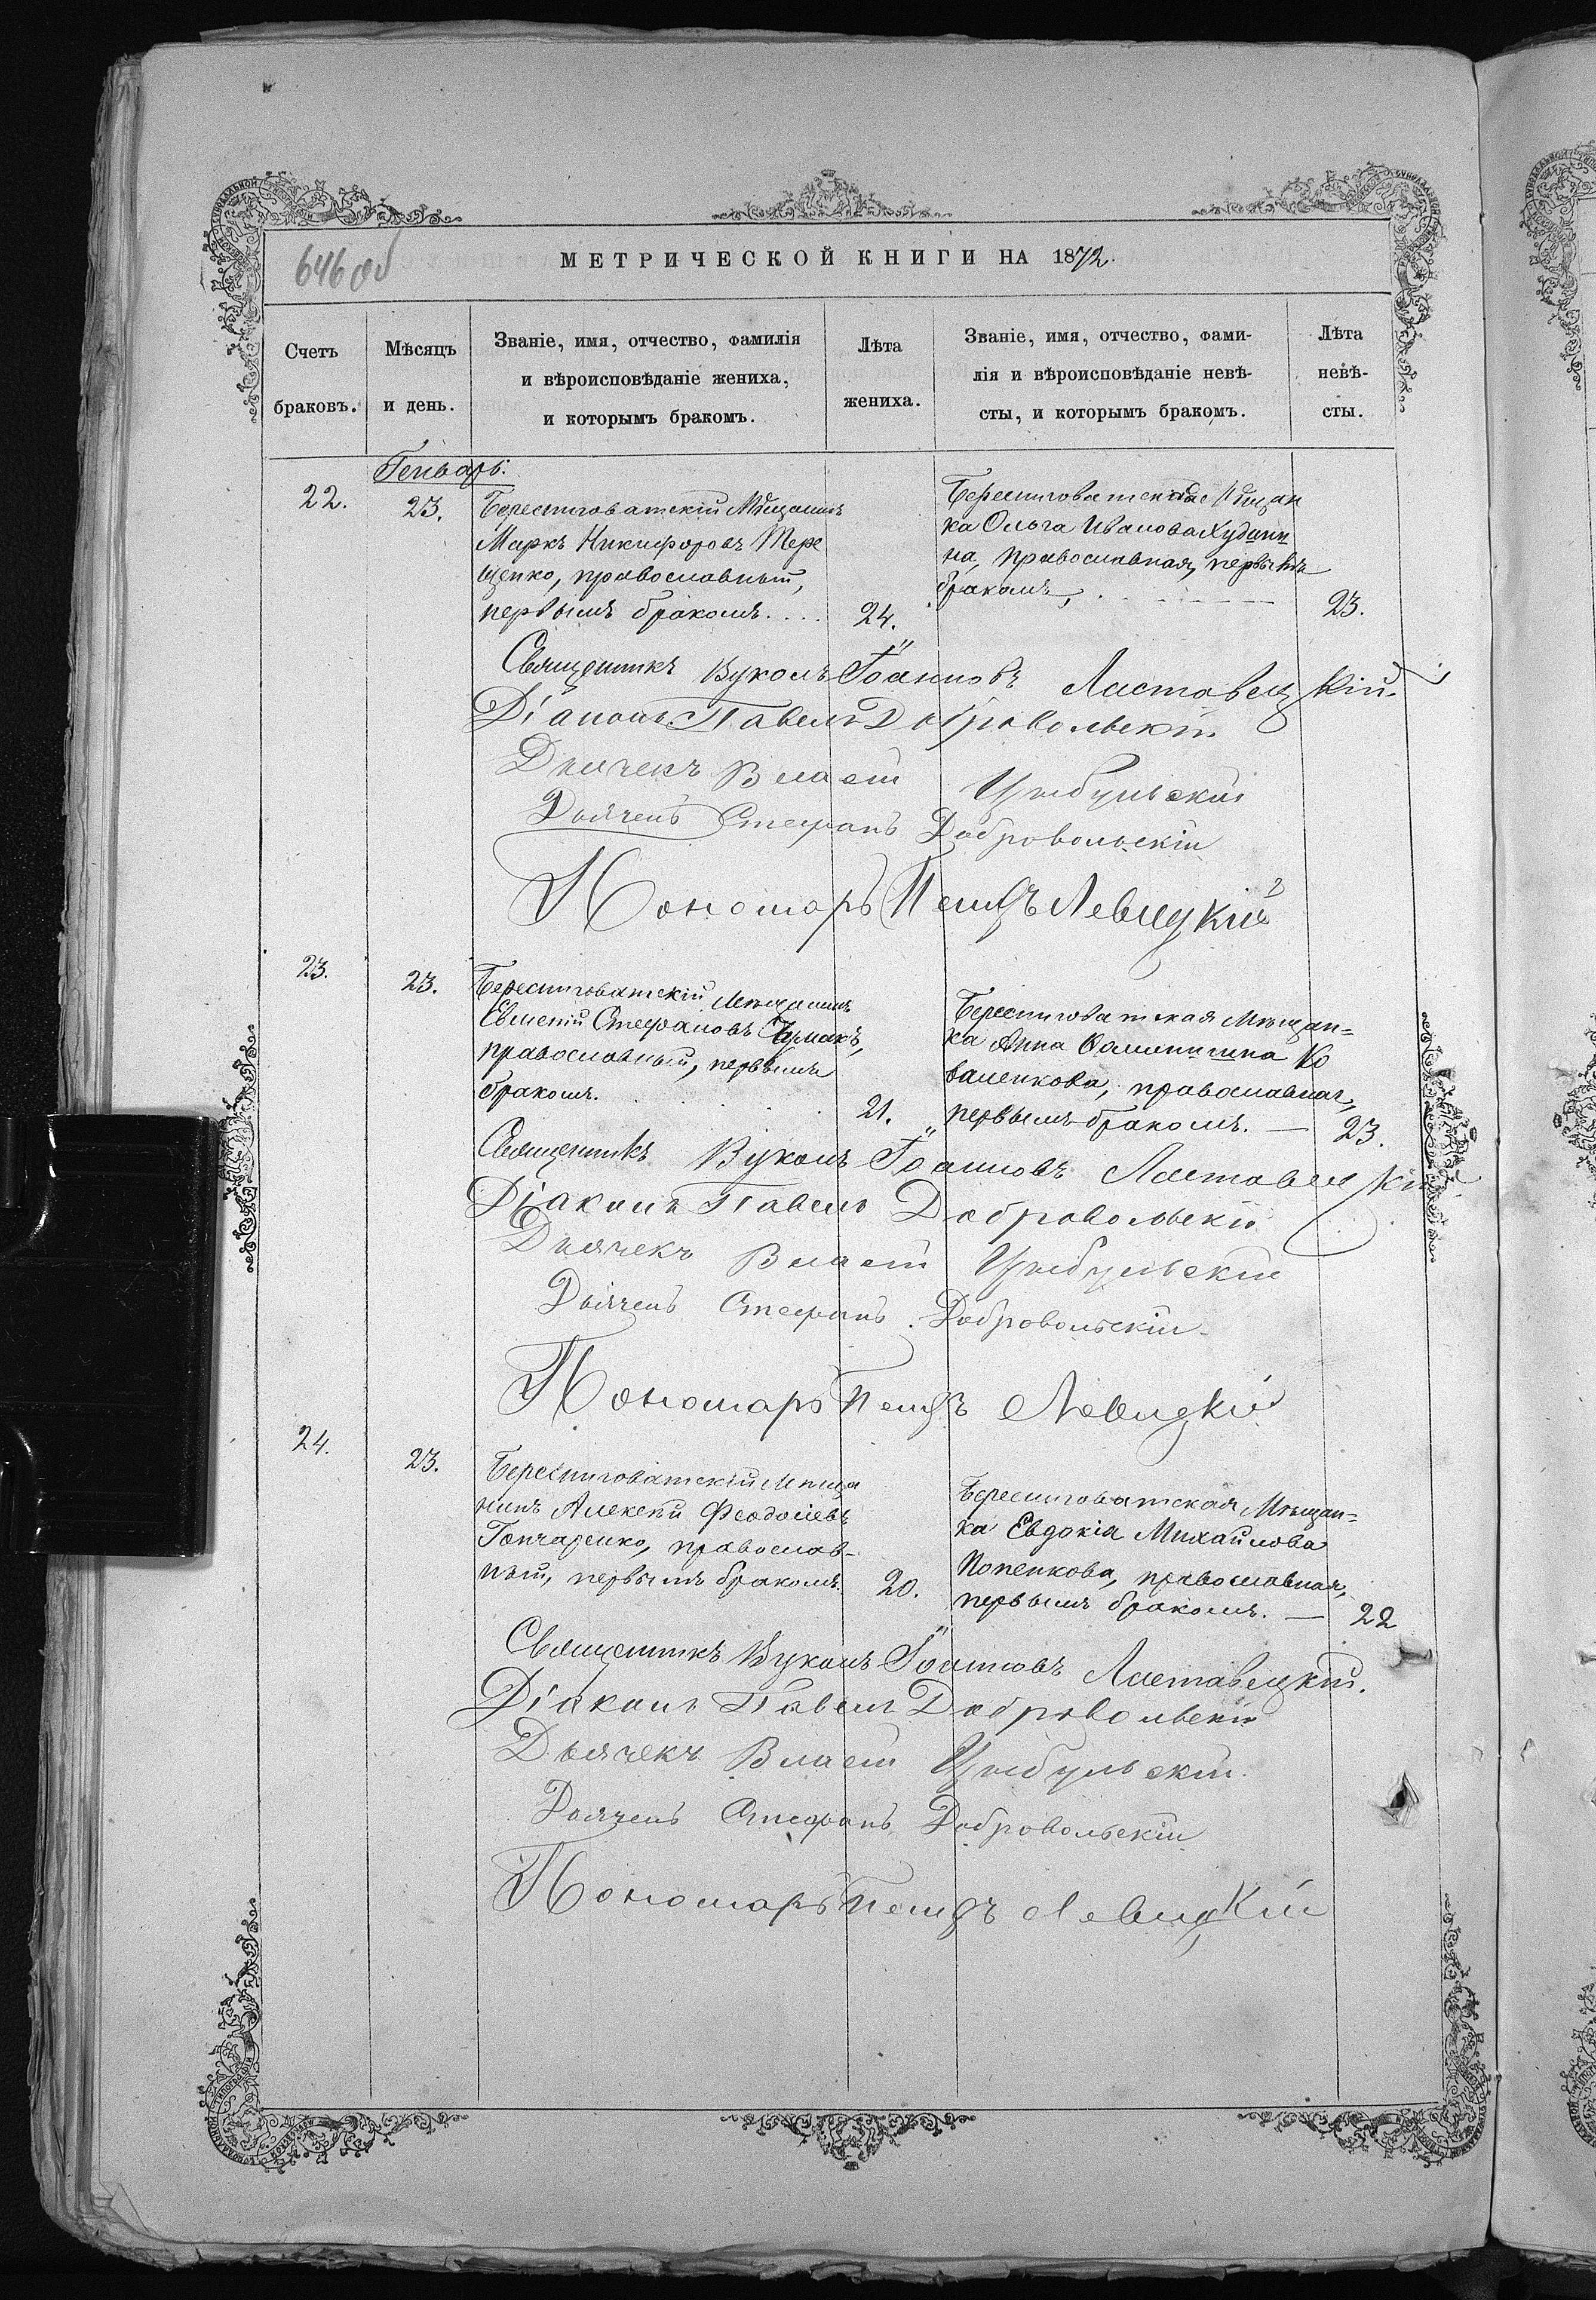 646 об
МЕТРИЧЕСКОЙ КНИГИ НА 1872.
Счетъ
браковъ.
Мѣсяцъ
и день.
Званіе, имя, отчество, фамилія
и вѣроисповѣданіе жениха,
и которымъ бракомъ.
Лѣта
жениха.
Званіе, имя, отчество, фами-
лія и вѣроисповѣданіе невѣ-
сты, и которымъ бракомъ.
Лѣта
невѣ-
сты.
Генварь.
22.
23.
Берестоватскій Мѣщанинъ
Маркъ Никифоровъ Тере
щенко, православный,
первымъ бракомъ....
24.
Берестоватская Мѣщан
ка Ольга Иванова
на, православная, первымъ
бракомъ,
23.
Священникъ Вуколъ Іоанновъ Ластавецкій.
Діаконъ Павелъ Добровольскій
Дьячекъ Власій Цыбульскій
Дьячекъ Стефанъ Добровольскій
Пономарь Петръ Левицкій
23.
23.
Берестоватскій Мѣщанинъ
Евменій Стефановъ Чумакъ,
православный, первымъ
бракомъ.
21.
Берестоватская Мѣщан=
ка Анна Ко
валенкова, православная,
первымъ бракомъ. —
23.
Священникъ Вуколъ Іоанновъ Ластавецкій
Діаконъ Павелъ Добровольскій
Дьячекъ Власій Цыбульскій
Дьячекъ Стефанъ Добровольскій
Пономарь Петръ Левицкій
24.
23.
Берестоватскій Мѣща
нинъ Алексѣй Феодосіевъ
Гончаренко, православ-
ный, первымъ бракомъ.
20.
Берестоватская Мѣщан=
ка Евдокія Михайлова
Попенкова, православная,
первымъ бракомъ. —
22
Священникъ Вуколъ Іоанновъ Ластавецкій.
Діаконъ Павелъ Добровольскій
Дьячекъ Власій Цыбульскій
Дьячекъ Стефанъ Добровольскій
Пономарь Петръ Левицкій